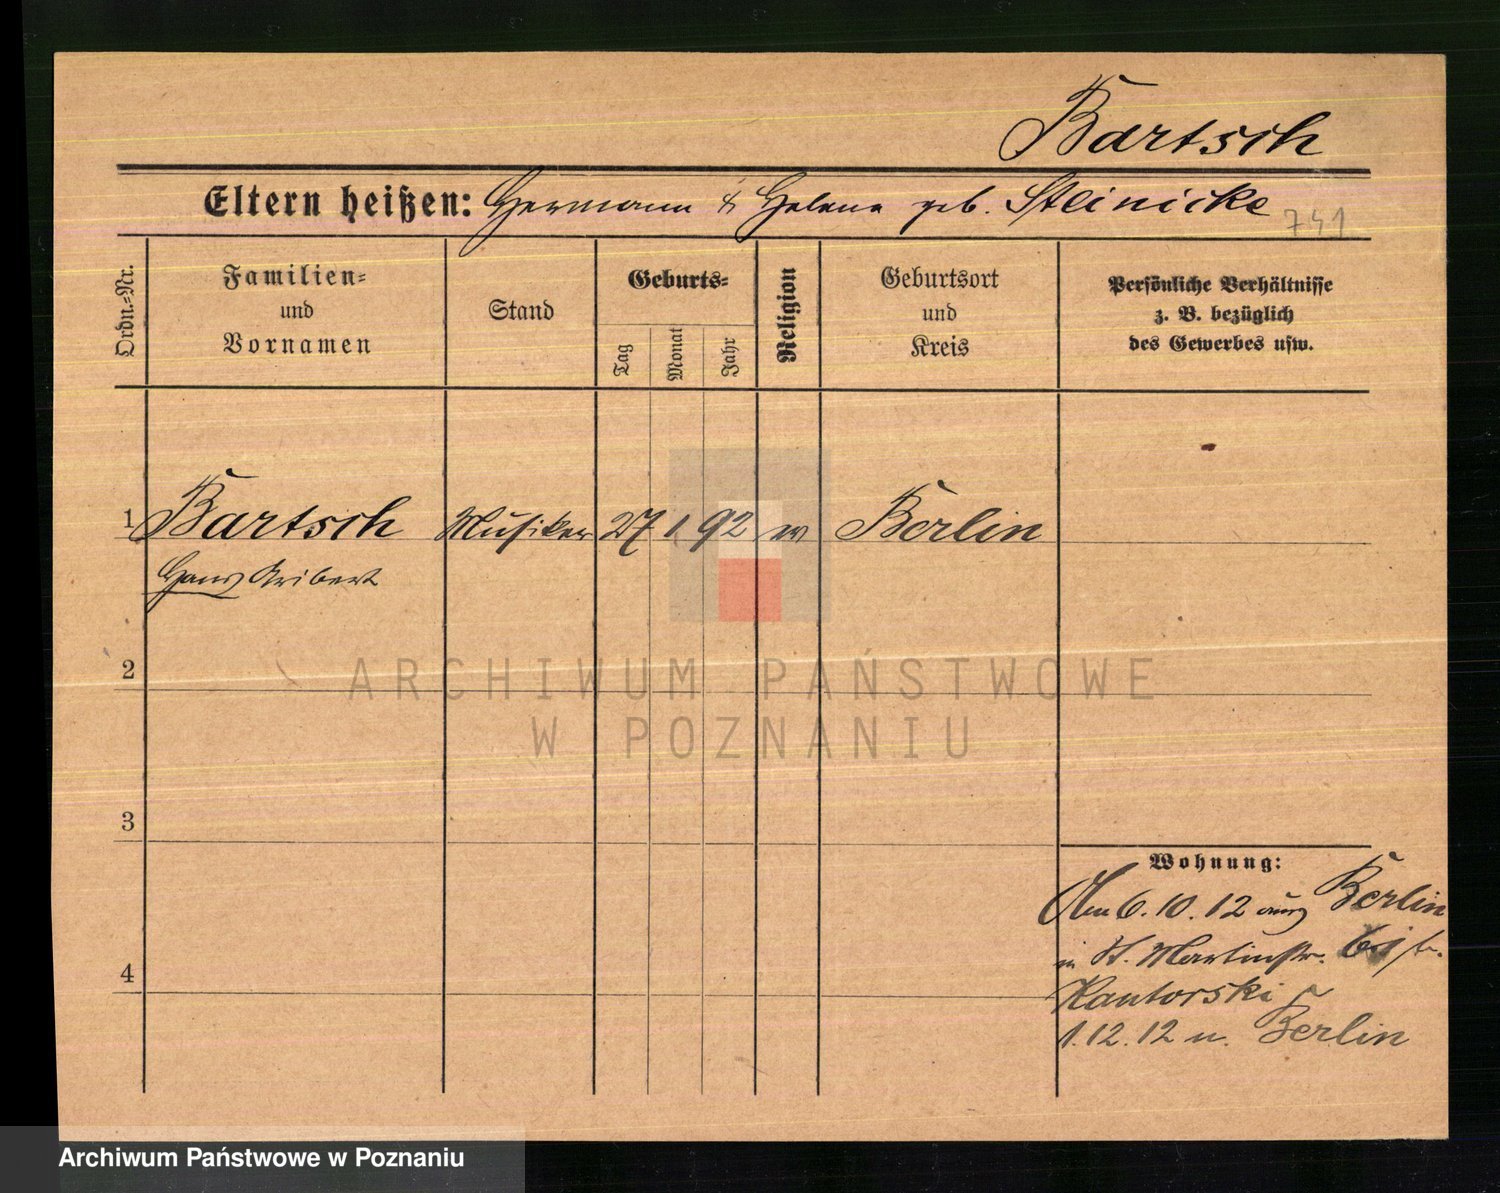 Bartsch
Eltern heißen: Hermann & Helene geb. Steinicke
741
Ordn.=Nr.
Familien=
und
Vornamen
Stand
Geburts=
Tag
Monat
Jahr
Religion
Geburtsort
und
Kreis
Persönliche Verhältnisse
z. B. bezüglich
des Gewerbes usw.
1 Bartsch Musiker 27 1 92 ev Berlin
Hans Aribert
2
3
4
Wohnung:
Am 6. 10. 12 aus Berlin
in St. Martinstr.
Kantorski
1. 12. 12 n. Berlin
ARCHIWUM PAŃSTWOWE
W POZNANIU
Archiwum Państwowe w Poznaniu